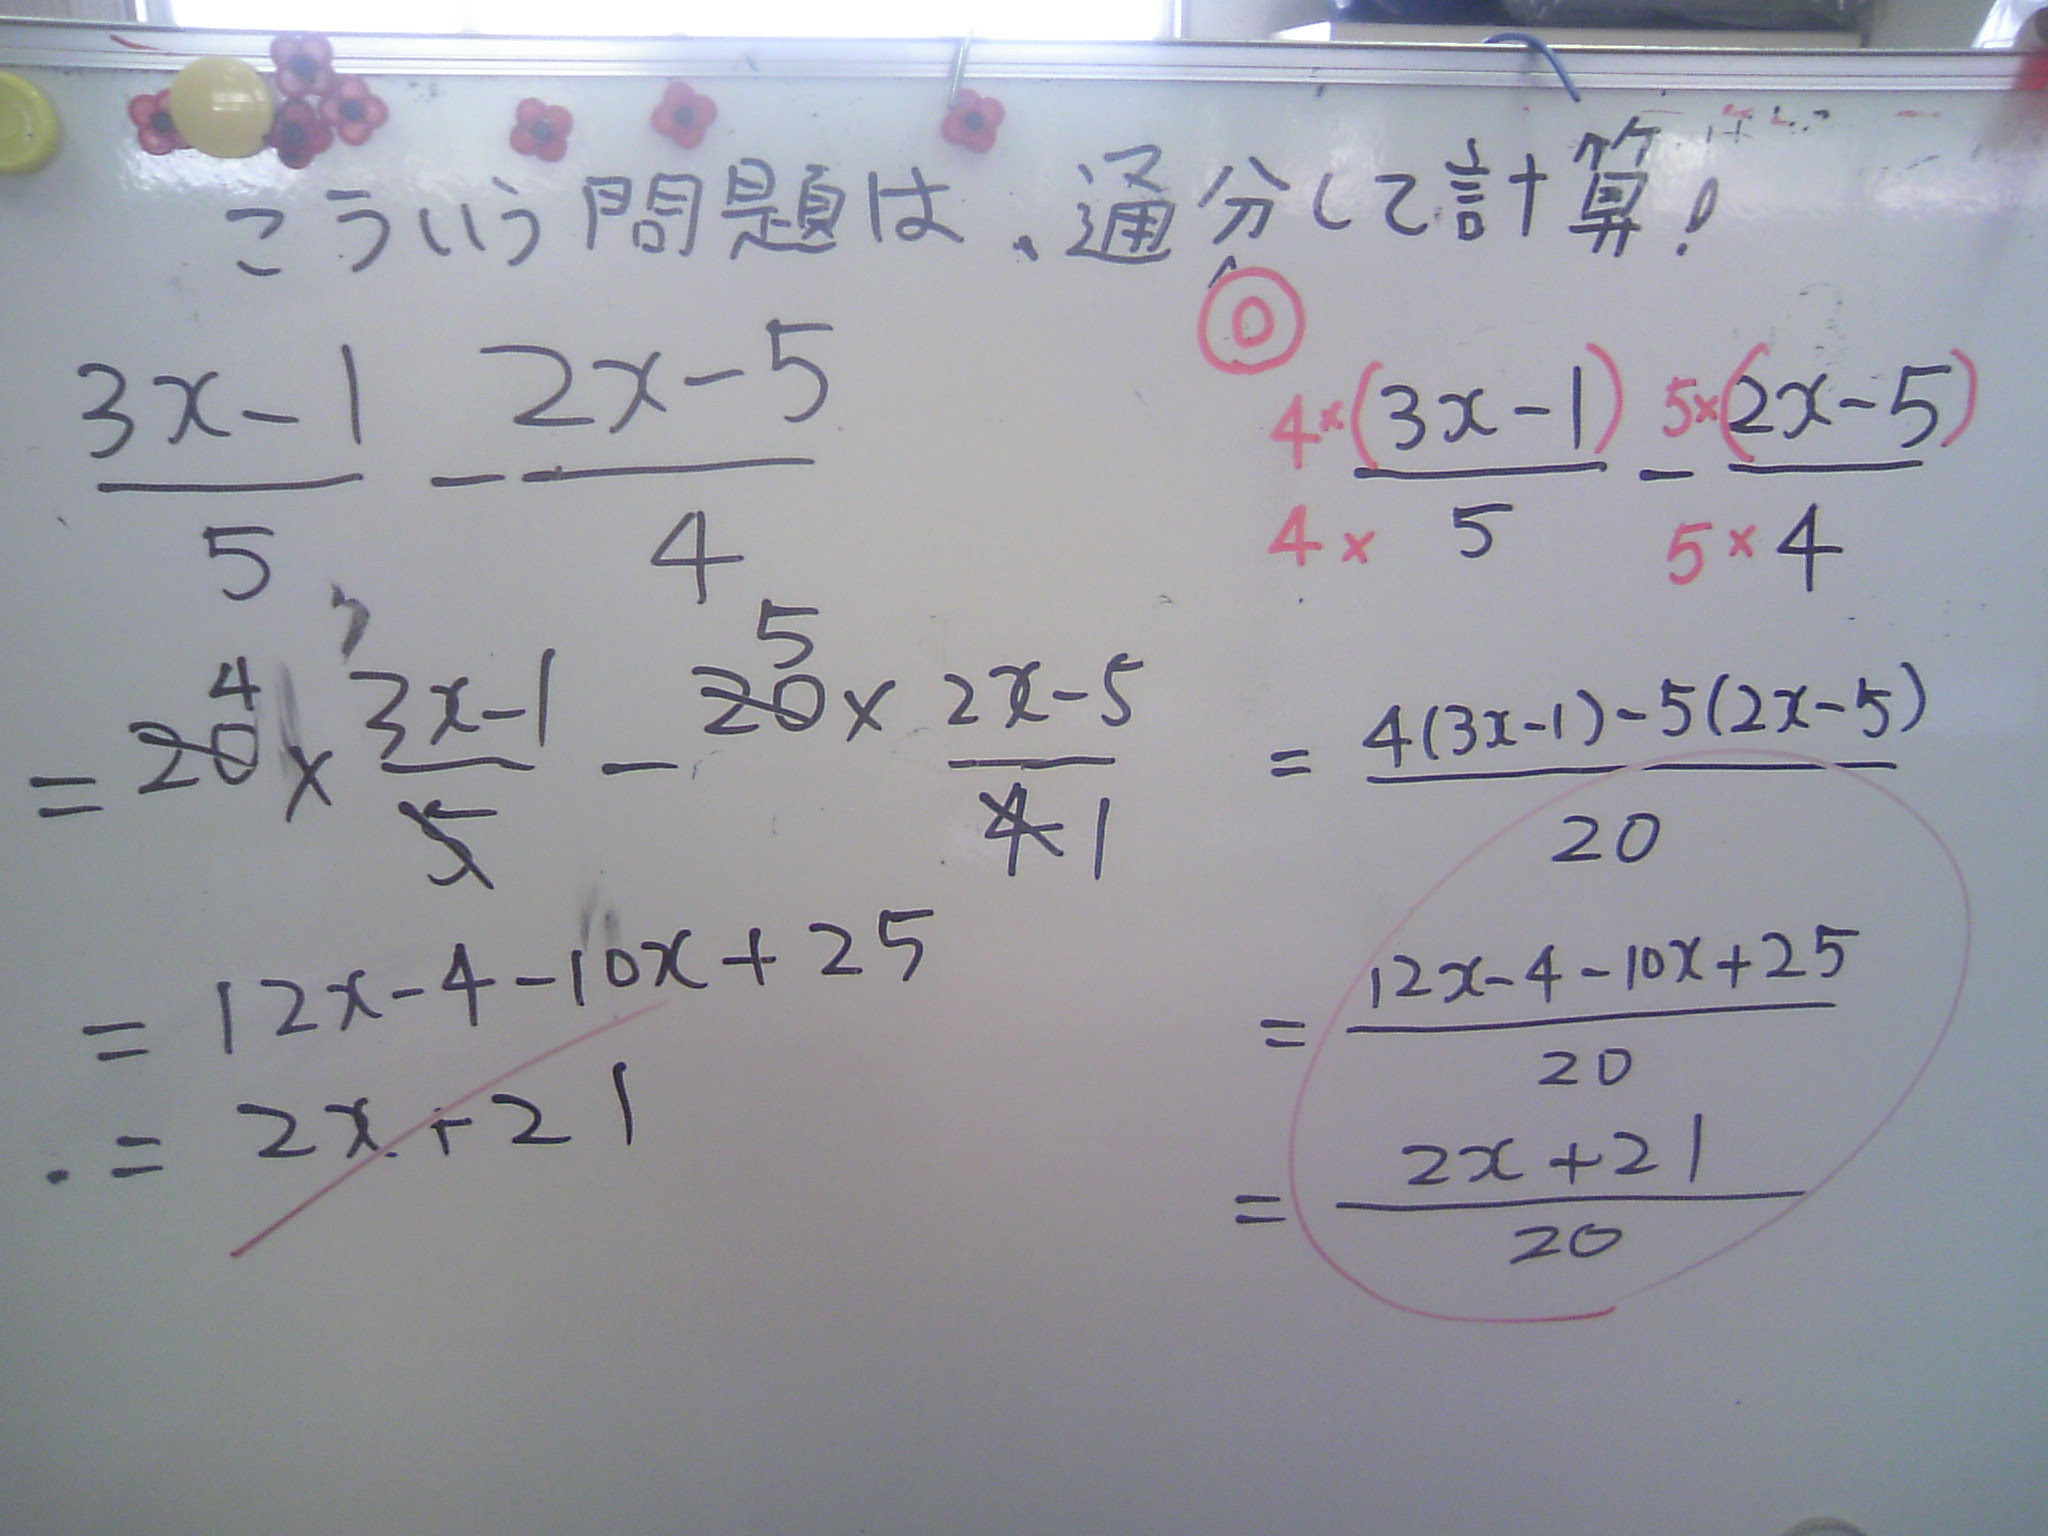 こういう問題は、通分して計算!
3x-1/5 - 2x-5/4
= 20 4 × 3x-1/5 - 20 5 × 2x-5/4 1
= 12x-4-10x+25
= 2x+21
◎
4×(3x-1)/4×5 - 5×(2x-5)/5×4
= 4(3x-1)-5(2x-5)/20
= 12x-4-10x+25/20
= 2x+21/20